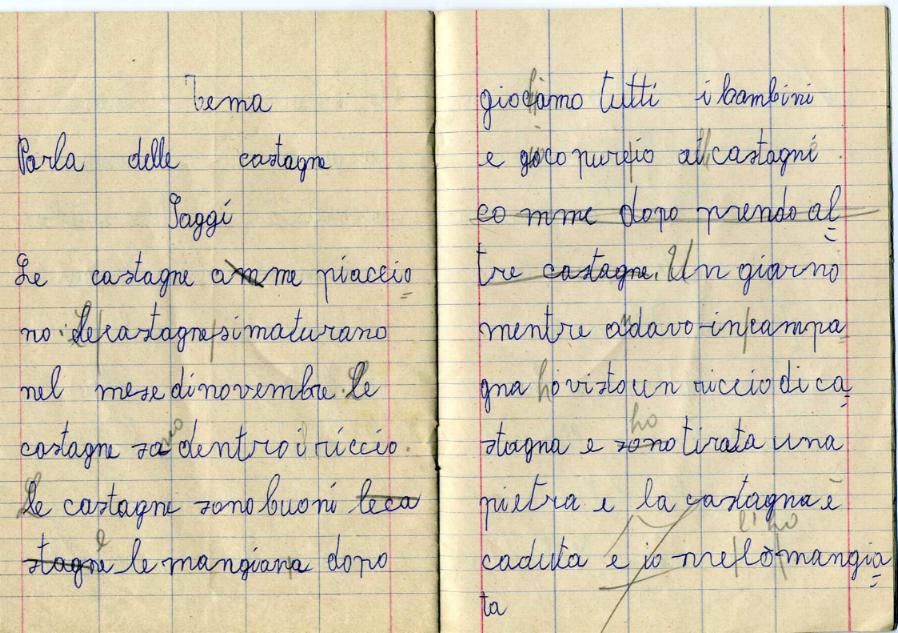 Tema
Parla delle castagne
Saggi
Le castagne amme piaccio
no. Le castagne si maturano
nel mese di novembre. Le
castagne sono dentro i riccio.
Le castagne sono buoni le ca
stagne le mangiana dopo
giochiamo tutti i bambini
e gioco pure io alle castagne.
co mme dopo prendo al
tre castagne. Un giorno
mentre andavo in campa
gna ho visto un riccio di ca
stagna e sono ho tirata una
pietra e la castagna è
caduta e io me lò l'ho mangia
ta